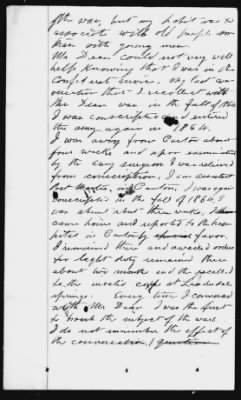 of the war, but my habit was to
associate with old people more
than with young men.
Mr Dean could not very well
help knowing that I was in the
Confederate service. My last con
versation that I recollect with
Mr Dean was in the fall of 1864
I was conscripted and entered
the army again in 1864.
I was away from Canton about
four weeks and upon examination
by the army surgeon I was relieved
from conscription, I am
Post Master, in Canton, I was again
conscripted in the fall of 1864. I
was absent about three weeks, I
came home and reported to the hos
pital in Canton,
I remained there and awaited orders
for light duty remained there
about two month and then
to the invalid corps at Lauderdale
springs. Every time I conversed
with Mr Dean I was the first
to broach the subject of the war.
I do not remember the effect of
the conversation,